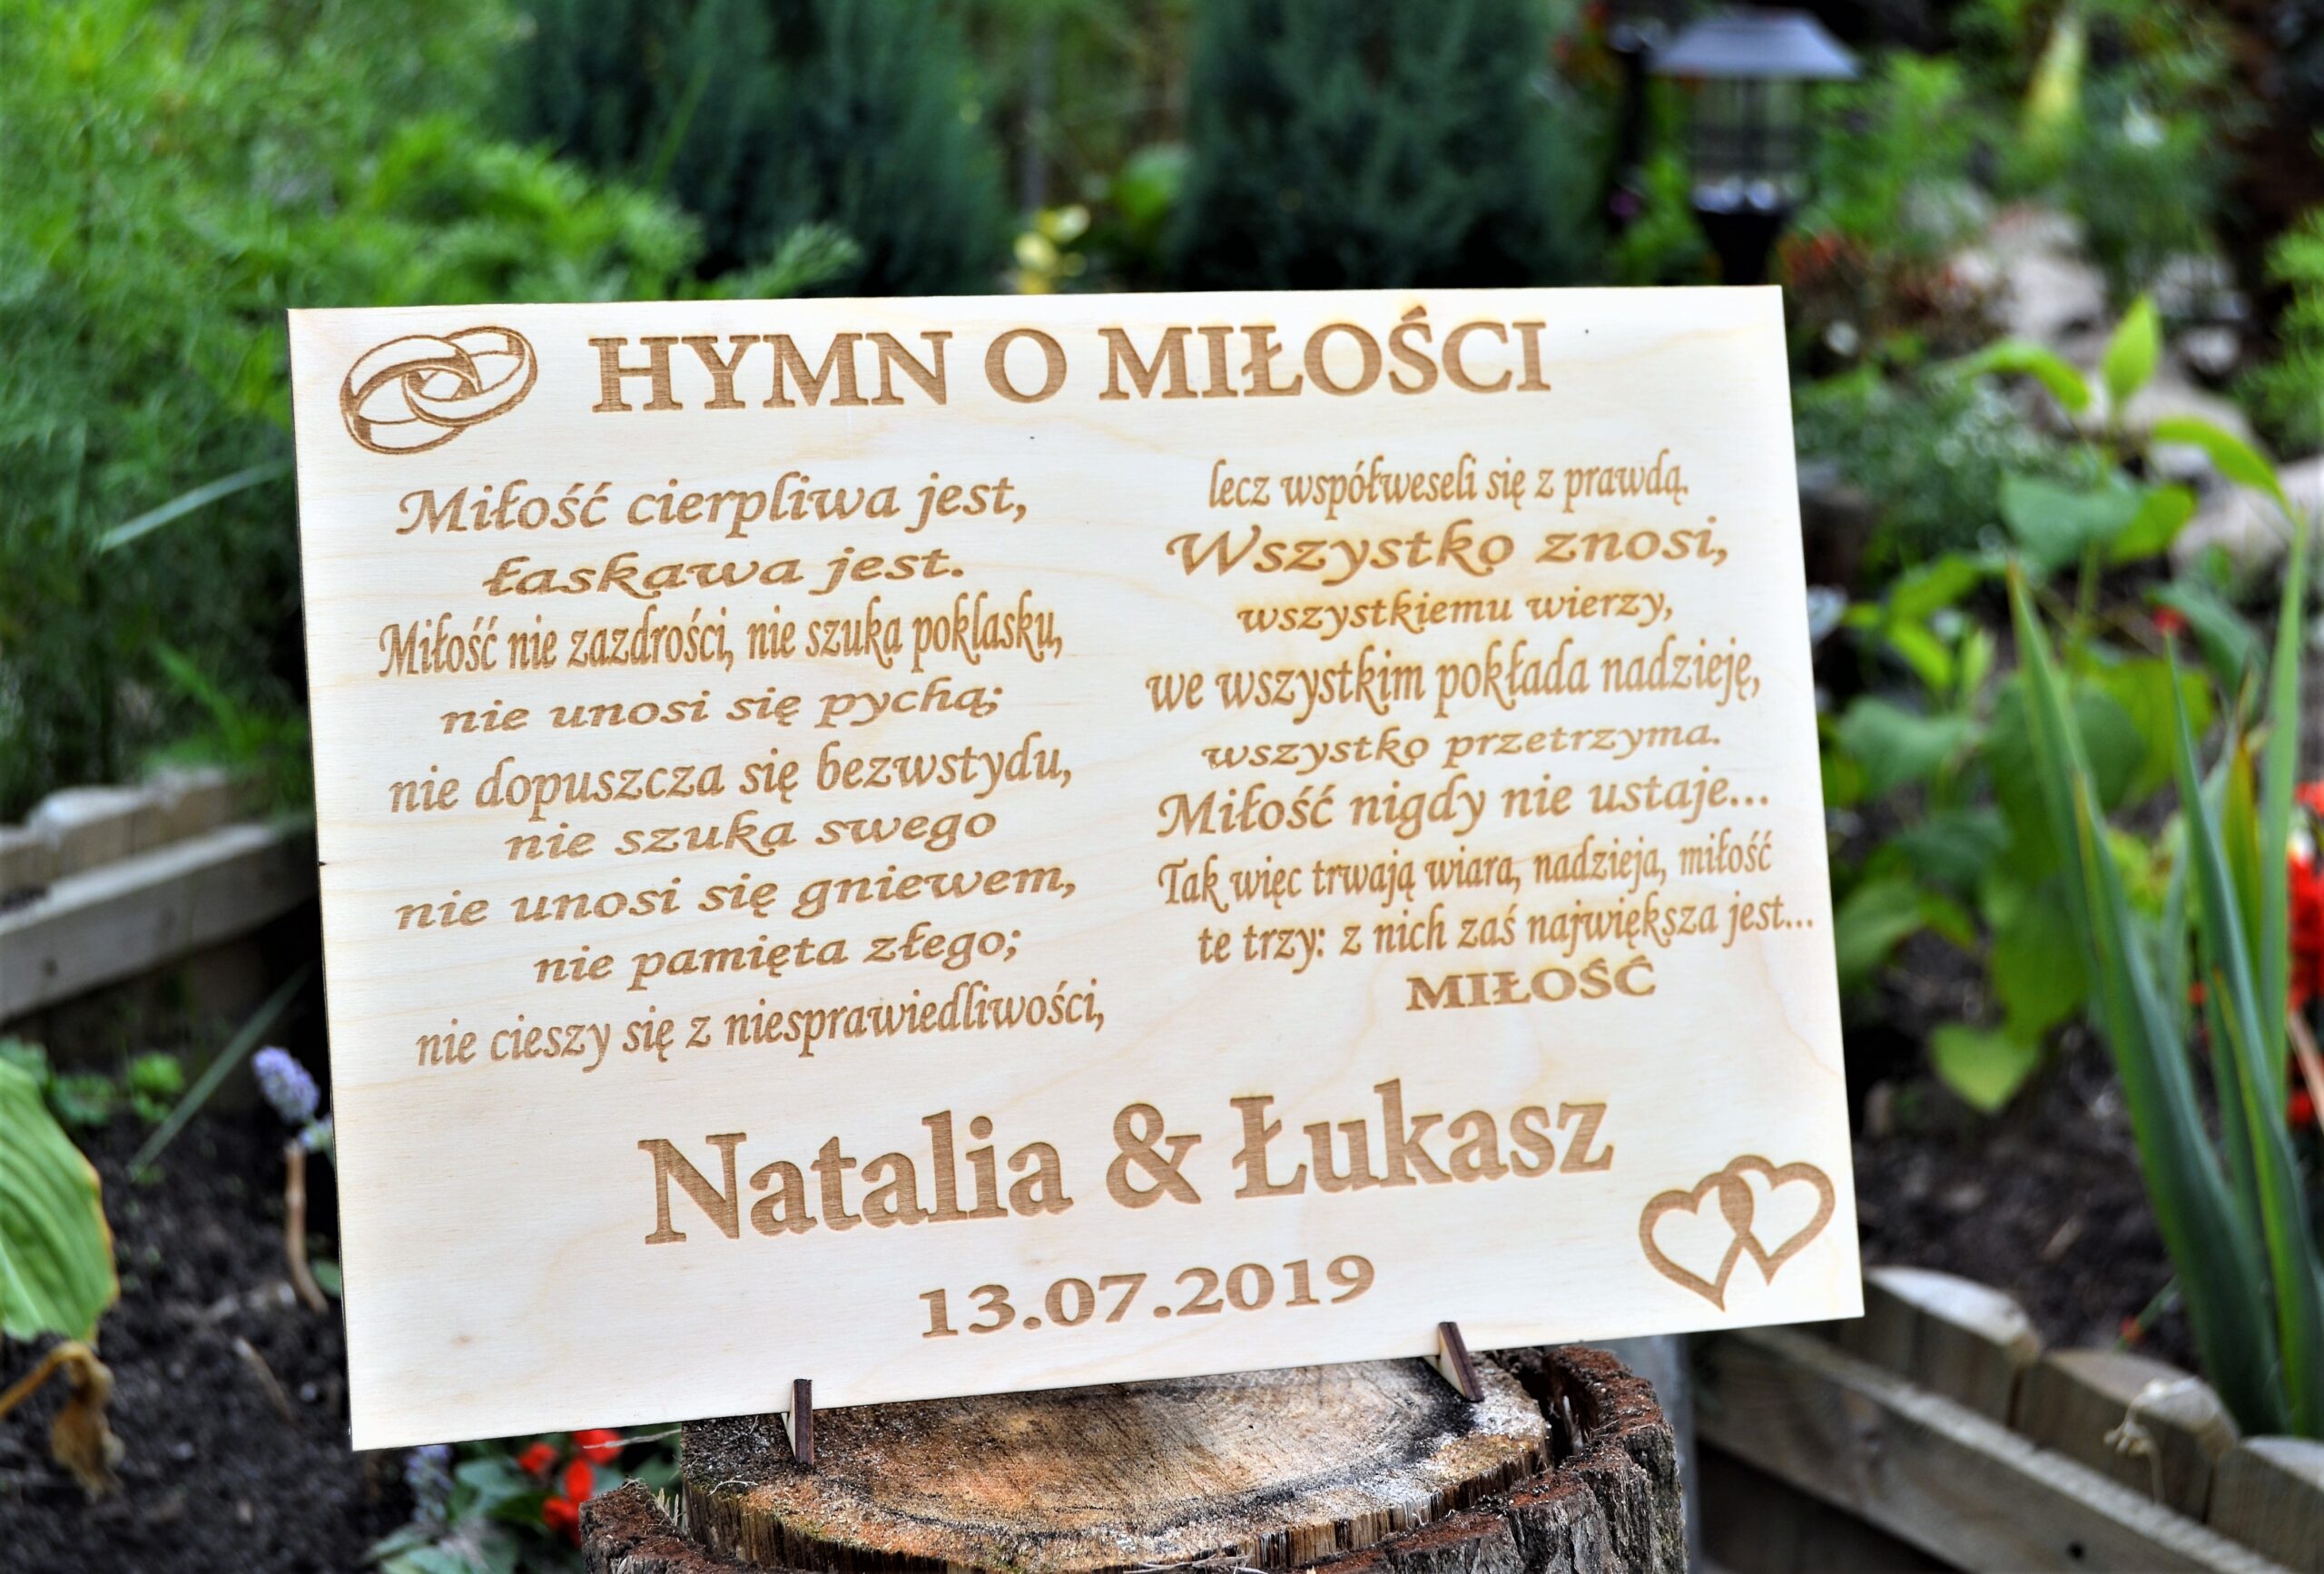 HYMN O MIŁOŚCI
Miłość cierpliwa jest,
łaskawa jest.
Miłość nie zazdrości, nie szuka poklasku,
nie unosi się pychą;
nie dopuszcza się bezwstydu,
nie szuka swego
nie unosi się gniewem,
nie pamięta złego;
nie cieszy się z niesprawiedliwości,
lecz współweseli się z prawdą.
Wszystko znosi,
wszystkiemu wierzy,
we wszystkim pokłada nadzieję,
wszystko przetrzyma.
Miłość nigdy nie ustaje...
Tak więc trwają wiara, nadzieja, miłość
te trzy: z nich zaś największa jest...
MIŁOŚĆ
Natalia & Łukasz
13.07.2019